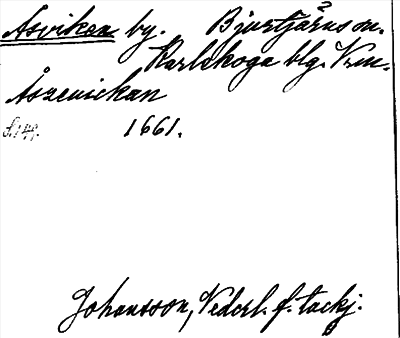 Åsviken by. Bjurtjärns sn.
Karlskoga blg. Vrm.
Åszewickan
S. 149. 1661.
Johansson, Nederl. f. tackj.